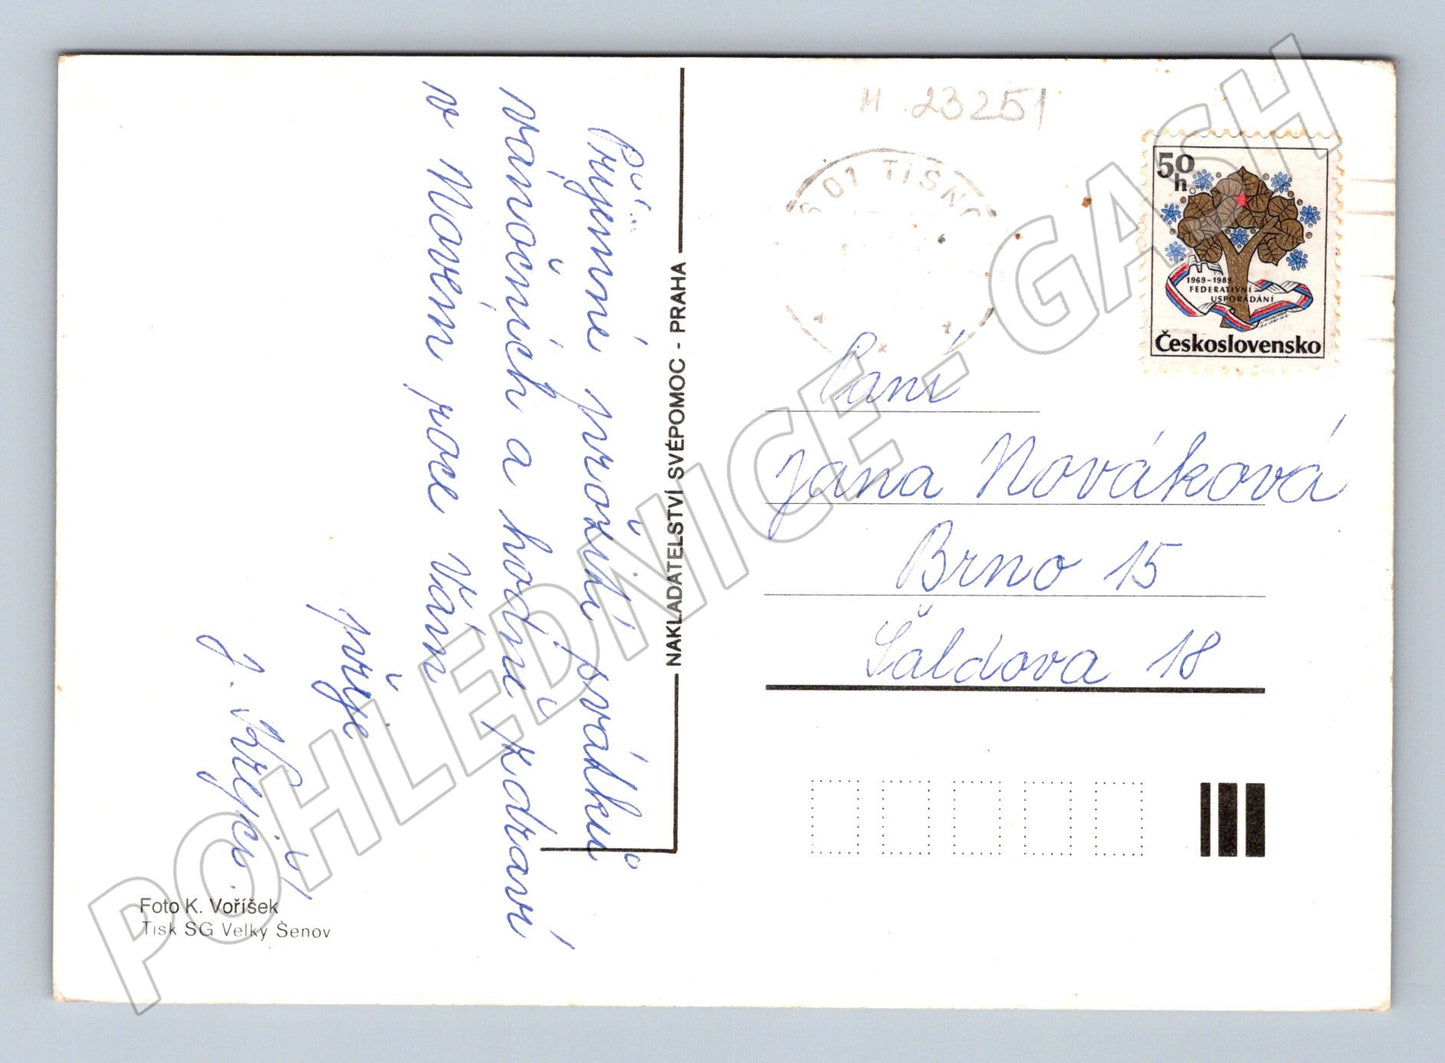 Příjemné prožití svátků
vánočních a hodně zdraví
v Novém roce Vám
přeje
J. Krejčí
Foto K. Voříšek
Tisk SG Velký Šenov
NAKLADATELSTVÍ SVÉPOMOC - PRAHA
M 23251
01 TIŠNO
50
h
1969-1989
FEDERATIVNÍ
USPOŘÁDÁNÍ
Československo
Paní
Jana Nováková
Brno 15
Šaldova 18
POHLEDNICE - GASH